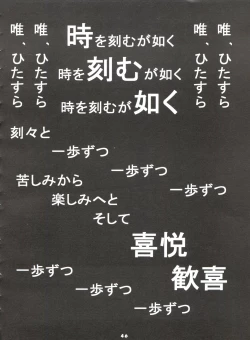 唯、ひたすら
唯、ひたすら
時を刻むが如く
時を刻むが如く
時を刻むが如く
唯、ひたすら
唯、ひたすら
刻々と
一歩ずつ
一歩ずつ
苦しみから
一歩ずつ
楽しみへと
そして
喜悦
一歩ずつ
歓喜
一歩ずつ
一歩ずつ
46